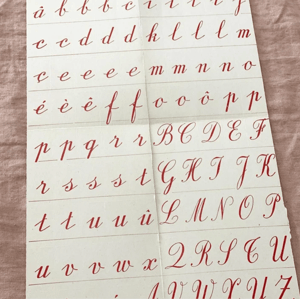 à b b b c i l l l f
c c d d d k l l l m
c e e e e m m n n o
é è ê f f o o ô p p
p p q r r B C D E F
r s s s t G H I J K
t t u u û L M N O P
u v v w x Q R S T U
V W X Y Z